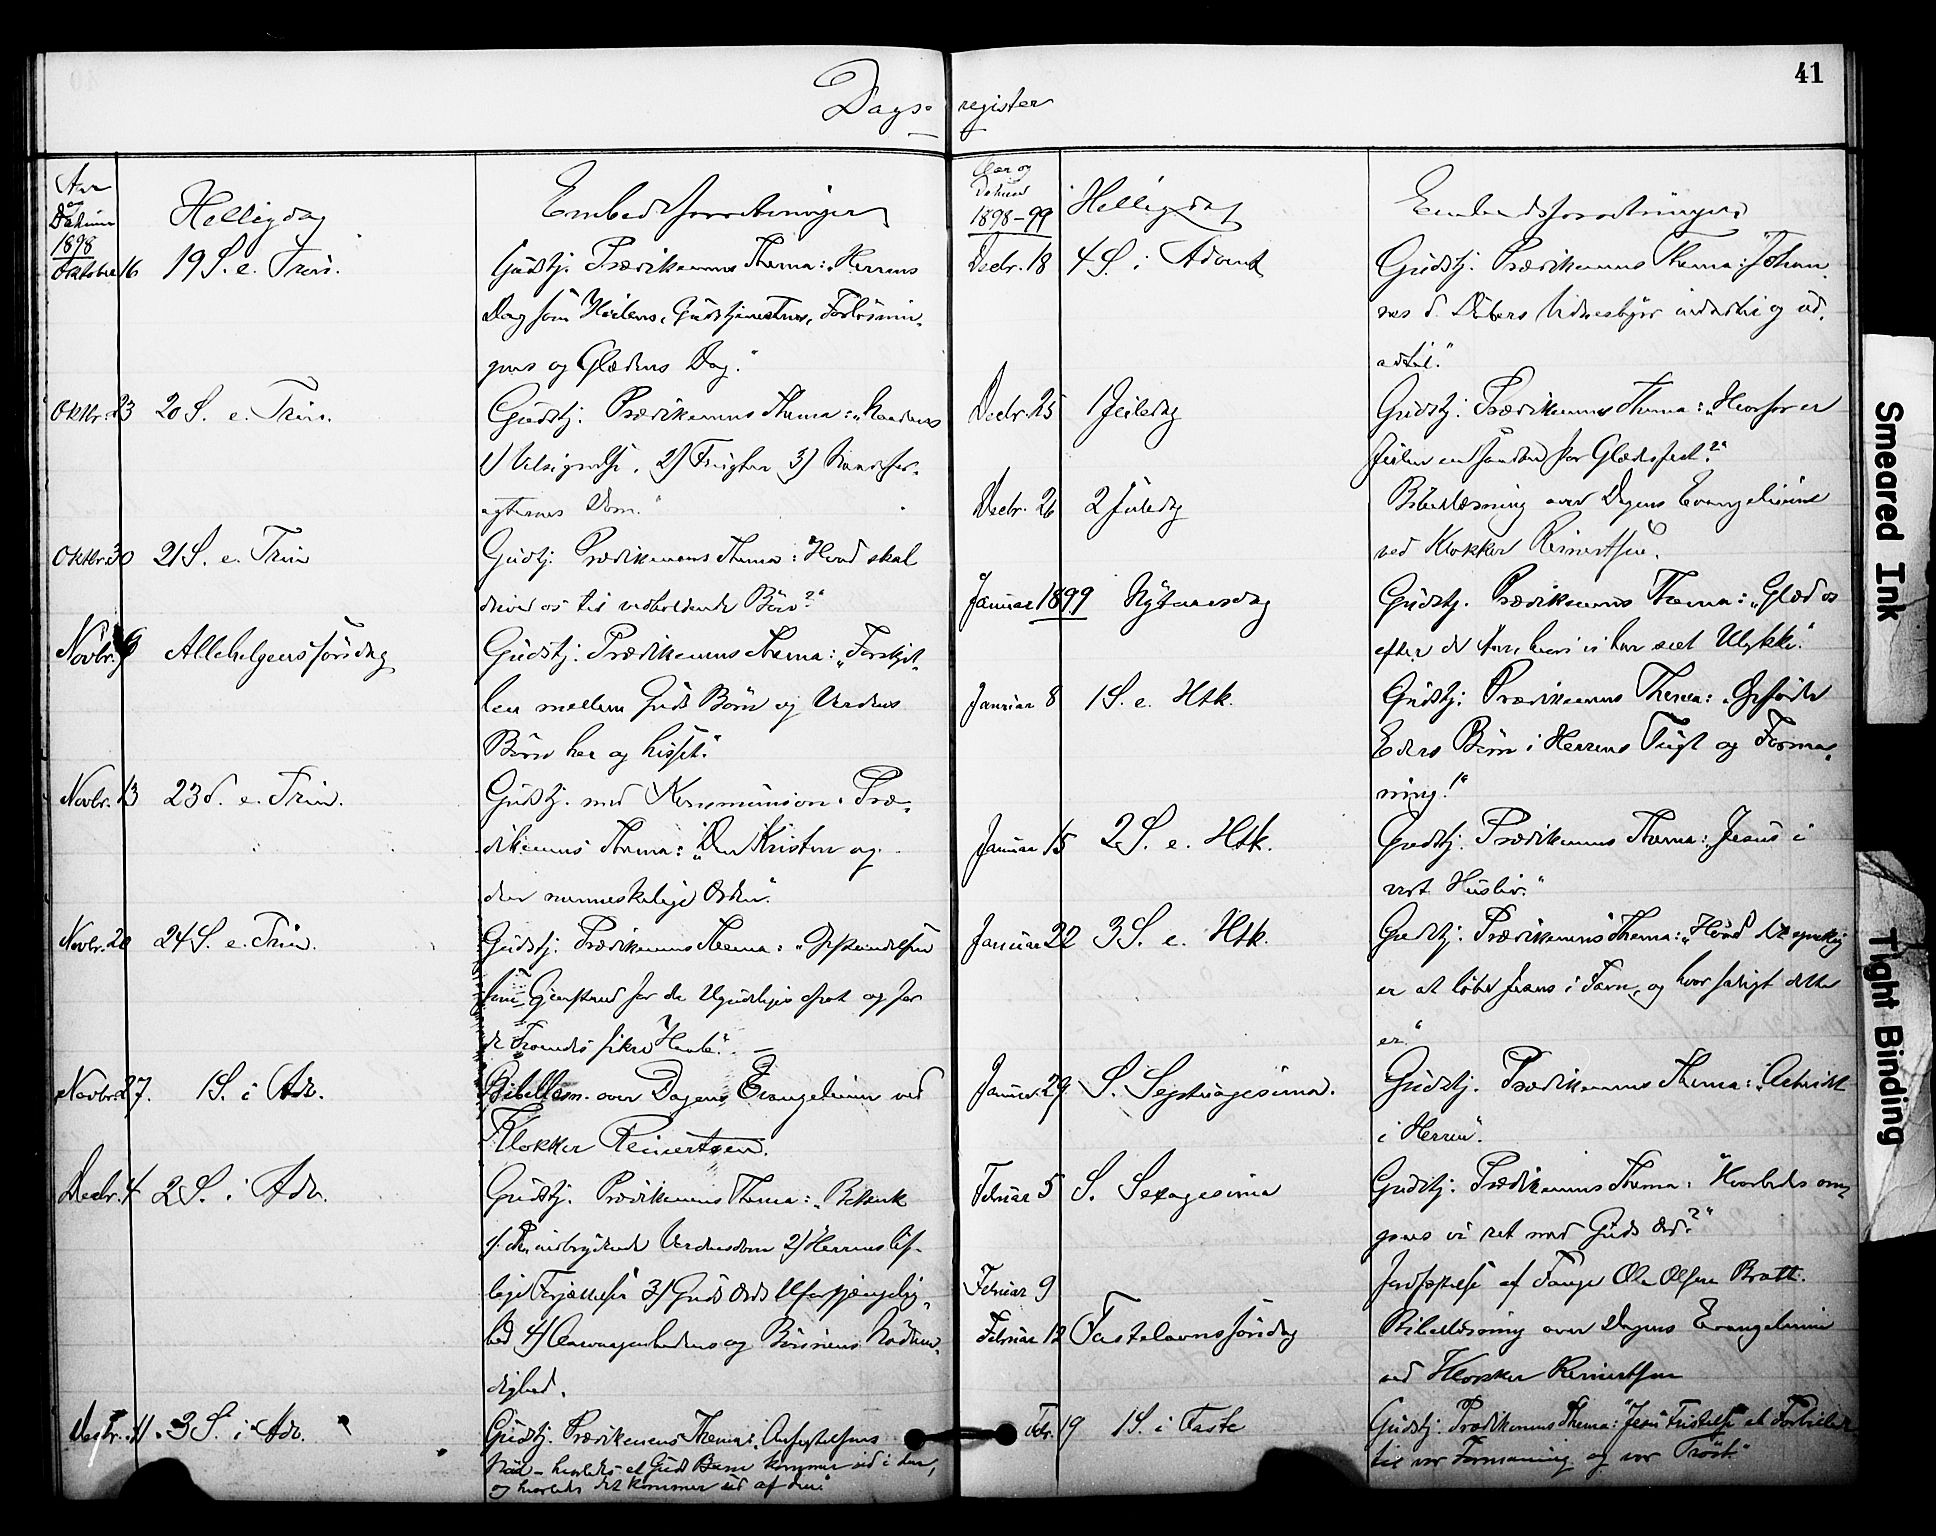 41
Dags- register
Aar
og
Datum
1898
Helligdag
Embedsforretninger
Oktober 16 19 S. e. Trin. Gudstj. Prædikenens Thema: „Herrens
Dag som Hvilens, Gudstjenestens, Forløsnin-
gens og Glædens Dag."
Oktbr. 23 20 S. e. Trin. Gudstj. Prædikenens Thema: „Naadens
1) Velsignelse, 2) Frugter 3)
Dom."
Oktbr. 30 21 S. e. Trin Gudstj. Prædikenens Thema: "Hvad skal
drive os til vedholdende Bøn?"
Novbr. 6 Allehelgenssøndag Gudstj. Prædikenens Thema: „Forskjel-
len mellem Guds Børn og Verdens
Børn her og hisset."
Novbr. 13 23 S. e. Trin. Gudstj. med Kommunion. Præ-
dikenens Thema: „Den Kristne og
den menneskelige Orden".
Novbr. 20 24 S. e. Trin. Gudstj. Prædikenens Thema: „Opstandelsen
som Gjenstand for de Ugudeliges Spot og for
de Frommes sikre Haab".
Novbr. 27. 1 S. i Adv. Bibellæsn. over Dagens Evangelium ved
Klokker Reinertsen.
Decbr. 4 2 S. i Adv. Gudstj. Prædikenens Thema: „Betænk
1. Den indbrydende Verdensdom 2) Herrens
lige Forjættelse 3) Guds Ords Uforgjængelig-
hed 4) Aarvaagenhedens og Bønnens Nødven-
dighed.
Decbr. 11. 3 S. i Adv. Gudstj. Prædikenens Thema: Anfægtelsens
Nød - hvorledes et Guds Barn kommer ind i den,
og hvorledes det kommer ud af den."
Aar og
Datum
1898-99
Helligdag
Embedsforretninger
Decbr. 18 4 S. i Advent Gudstj. Prædikenens Thema: "Johan-
nes d. Døbers Vidnesbyrd indadtil og ud-
adtil."
Decbr. 25 1 Juledag Gudstj. Prædikenens Thema: „Hvorfor er
Julen en saadan stor Glædesfest?"
Decbr. 26 2 Juledag Bibellæsning over Dagens Evangelium
ved Klokker Reinertsen.
Januar 1899 Nytaarsdag Gudstj. Prædikenens Thema: „Glæd os
efter de Aar, hvori vi har seet Ulykke."
Januar 8 1 S. e. Htk. Gudstj. Prædikenens Thema: „Opføder
Eders Børn i Herrens Tugt og Forma-
ning!"
Januar 15 2 S. e. Htk. Gudstj. Prædikenens Thema: „Jesus i
vort Husliv."
Januar 22 3 S. e. Htk. Gudstj. Prædikenens Thema: „Hvad det
er at løbe Jesus i Favn, og hvor saligt dette
er."
Januar 29. S. Septuagesima. Gudstj. Prædikenens Thema: „Arbeidet
i Herren".
Februar 5 S. Sexagesima Gudstj. Prædikenens Thema: "Hvorledes om-
gaaes vi ret med Guds Ord?"
Februar 9 Jordfæstelse af Fange Ole Olsen Bratt.
Februar 12 Fastelavnssøndag Bibellæsning over Dagens Evangelium
ved Klokker Reinertsen
Febr. 19 1 S. i Faste Gudstj. Prædikenens Thema: "Jesu Fristelse et Forbillede
til vor Formaning og vor Trøst"
Smeared Ink
Tight Binding